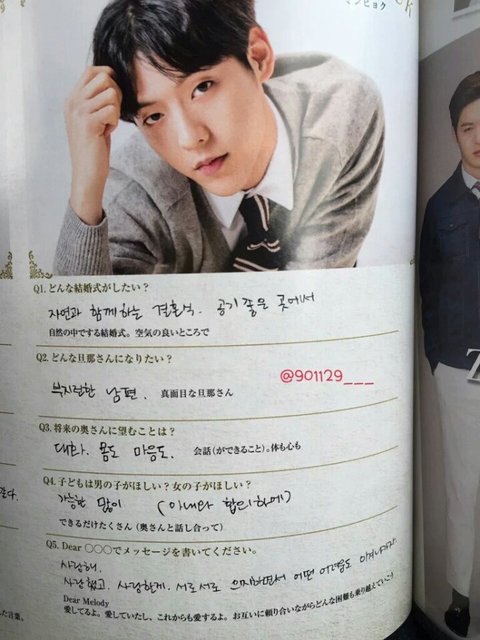 ミンヒョク
Q1. どんな結婚式がしたい？
자연과 함께하는 결혼식. 공기 좋은 곳에서
自然の中でする結婚式。空気の良いところで
Q2. どんな旦那さんになりたい？
부지런한 남편. 真面目な旦那さん
@901129___
Q3. 将来の奥さんに望むことは？
대화. 몸도 마음도. 会話(ができること)。体も心も
Q4. 子どもは男の子がほしい？女の子がほしい？
가능한 많이 (아내와 합의하에)
できるだけたくさん（奥さんと話し合って）
Q5. Dear ○○○でメッセージを書いてください。
사랑해.
사랑했고. 사랑할게. 서로서로 의지하면서 어떤 어려움도 이겨내자
Dear Melody
愛してるよ。愛していたし、これからも愛するよ。お互いに頼り合いながらどんな困難も乗り越えていこう